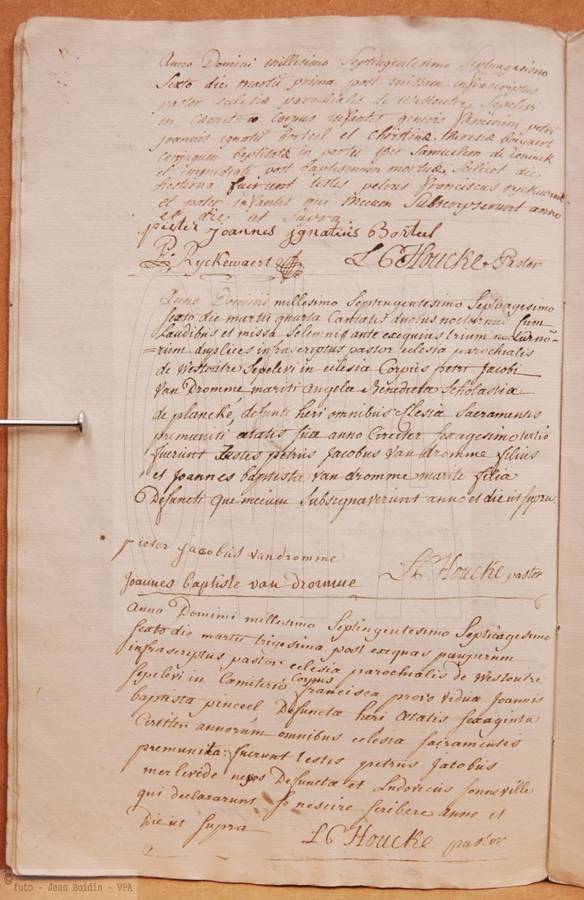 Anno Domini millesimo Septingentesimo Septuagesimo
Sexto die martii prima post missam infrascriptus
pastor ecclesiæ parochialis de Westoutre Sepelivi
in cæmeterio corpus infantis generis fæminini, petri
joannis ignatii borteel et christinæ theresiæ
conjugum baptisatæ in partu per Samuelem de
et immediate post baptismum mortuæ, scilicet die
hesterna fuerunt testes petrus franciscus ryckewaert
et pater infantis qui mecum Subscripserunt anno
et die ut supra
pieter joannes jgnatius Borteel
P: Ryckewaert
L C Houcke Pastor
Anno Domini millesimo Septingentesimo Septuagesimo
Sexto die martii quarta Cantatis duobus nocturnis Cum
Laudibus et missa Solemni ante exequias trium noctur nó=
=rum duplices infrascriptus pastor eclesia parochialis
de Westoutre Sepelivi in eclesia Corpus petri Jacobi
Van Dromme mariti Angela Benedicta Scholastia
de plancke, defunti heri omnibus Eclesia Sacramentis
premuniti ætatis sua anno Circiter sexagesimo tertio
fuerunt testes petrus Jacobus Van dromme filius
et Joannes baptista van dromme filia
Defuncti que mecum Subsignaverunt anno et die ut supra
pieter jacobus vandromme
L C Houcke pastor
Joannes baptiste van dromme
Anno Domini millesimo Septingentesimo Septuagesimo
sexto die martii trigesima post exequias pauperum
infrascriptus pastor eclesia parochialis de Westoutre
Sepelivi in Cæmiterio Corpus francisca provo vidua Joannis
baptista pinceel Defuncta heri ætatis sexaginta
Circiter annorum omnibus eclesia sacramentis
premunita: fuerunt testes petrus Jacobus
merlevide nepos Defuncta et Ludovicus sonneville
qui declararunt se nescire scribere anno et
Die ut supra
L C Houcke pastor
© foto - Jean Boidin - VPA